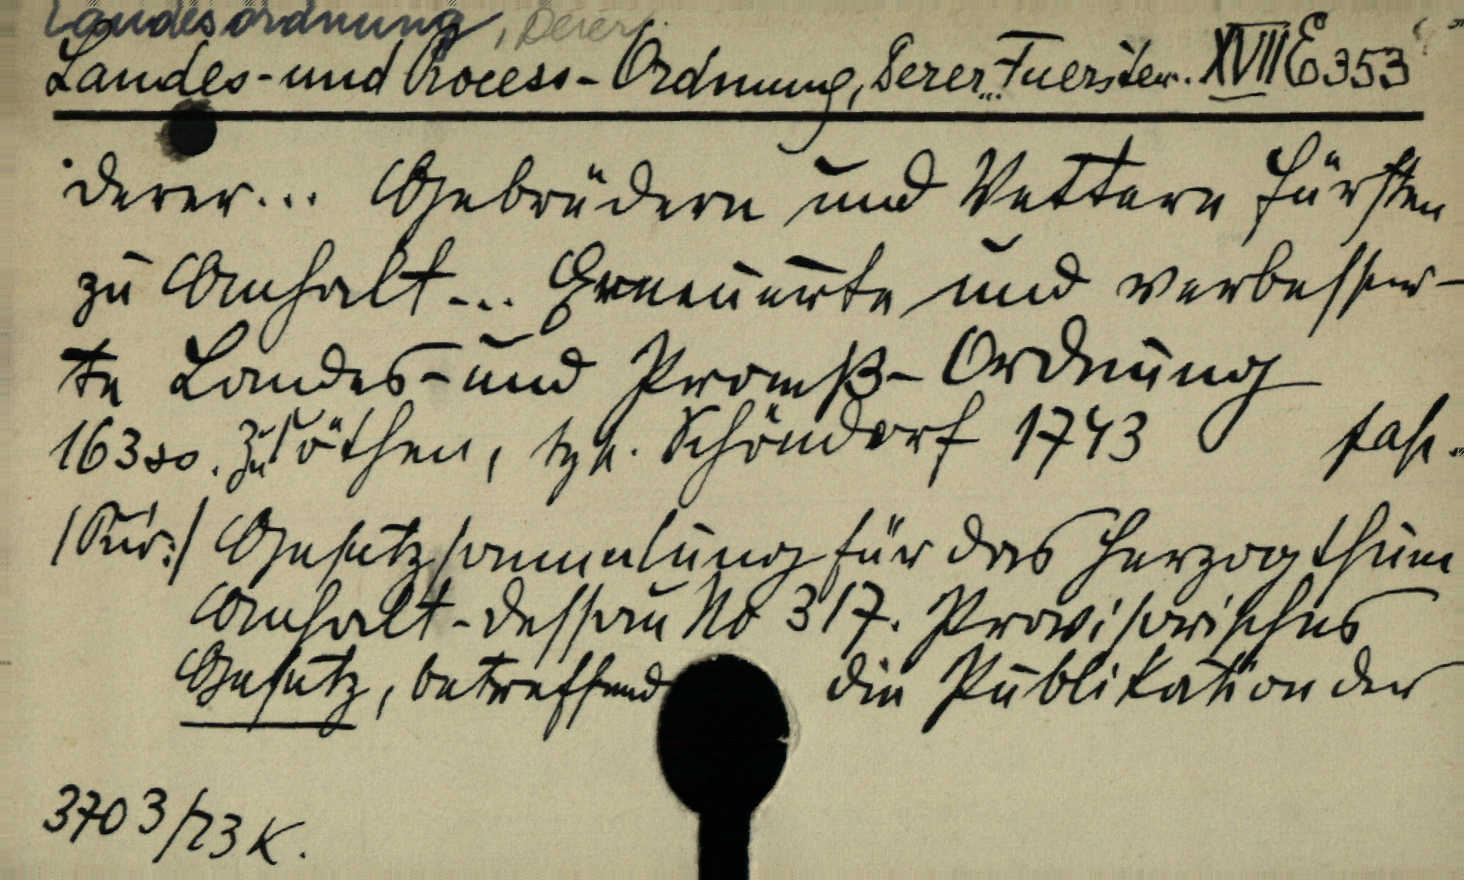 Landesordnung, Derer
Landes- und Process-Ordnung, Derer... Fuersten. XVII E 353
derer... Gebrüdern und Vettern Fürsten
zu Anhalt... Erneuerte und verbesser-
te Landes- und Proceß-Ordnung
163 SS. Zu Cöthen, Schöndorf 1743
Gesetzsammlung für das Herzogthum
Anhalt-Dessau No 317. Provisorisches
Gesetz, betreffend die Publikation der
3703/23 K.